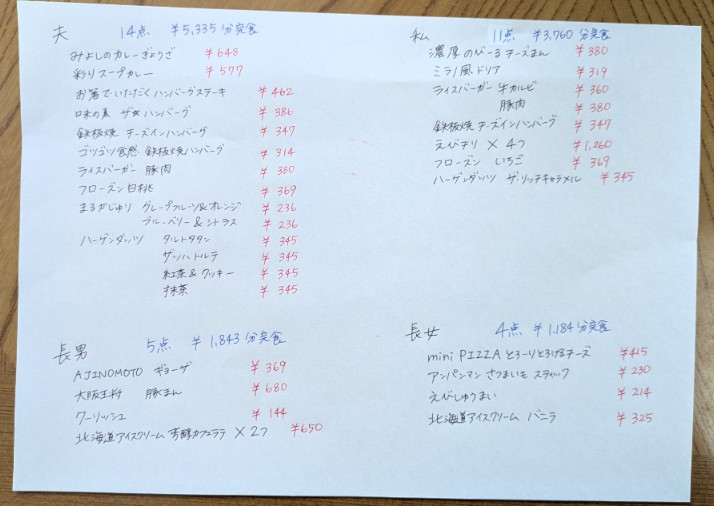 夫 14点 ¥5,335分実食
みよしのカレーぎょうざ ¥648
彩りスープカレー ¥577
お箸でいただくハンバーグステーキ ¥462
味の素 ザ★ハンバーグ ¥386
鉄板焼 チーズインハンバーグ ¥347
ゴツゴツ食感 鉄板焼ハンバーグ ¥314
ライスバーガー 豚肉 ¥380
フローズン白桃 ¥369
まるかじゅり グレープフルーツ&オレンジ ¥236
ブルーベリー&シトラス ¥236
ハーゲンダッツ タルトタタン ¥345
ザッハトルテ ¥345
紅茶&クッキー ¥345
抹茶 ¥345
私 11点 ¥3,760分実食
濃厚のびーるチーズまん ¥380
ミラノ風ドリア ¥319
ライスバーガー 牛カルビ ¥360
豚肉 ¥380
鉄板焼 チーズインハンバーグ ¥347
えびすり × 4つ ¥1,260
フローズン いちご ¥369
ハーゲンダッツ ザ・リッチキャラメル ¥345
長男 5点 ¥1,843分実食
AJINOMOTO ギョーザ ¥369
大阪王将 豚まん ¥680
クーリッシュ ¥144
北海道アイスクリーム 芳醇カフェラテ × 2つ ¥650
長女 4点 ¥1,184分実食
mini PIZZA とろーりとろけるチーズ ¥415
アンパンマン さつまいもスティック ¥230
えびしゅうまい ¥214
北海道アイスクリーム バニラ ¥325